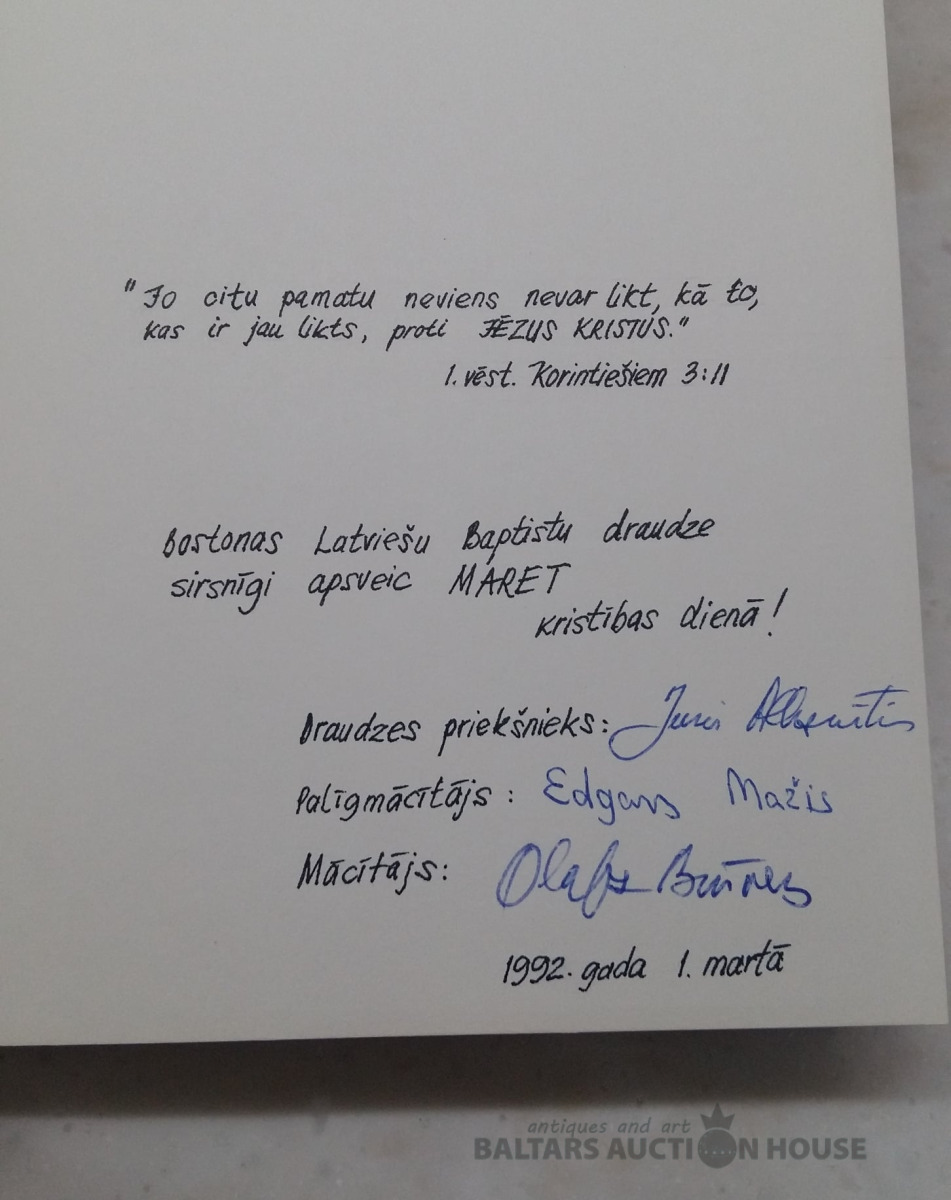 "Jo citu pamatu neviens nevar likt, kā to,
kas ir jau likts, proti JĒZUS KRISTUS."
1. vēst. Korintiešiem 3:11
Bostonas Latviešu Baptistu draudze
sirsnīgi apsveic MARET
kristības dienā!
Draudzes priekšnieks: Juris
Palīgmācītājs: Edgars Mažis
Mācītājs: Olafs
1992. gada 1. martā
antiques and art
BALTARS AUCTION HOUSE